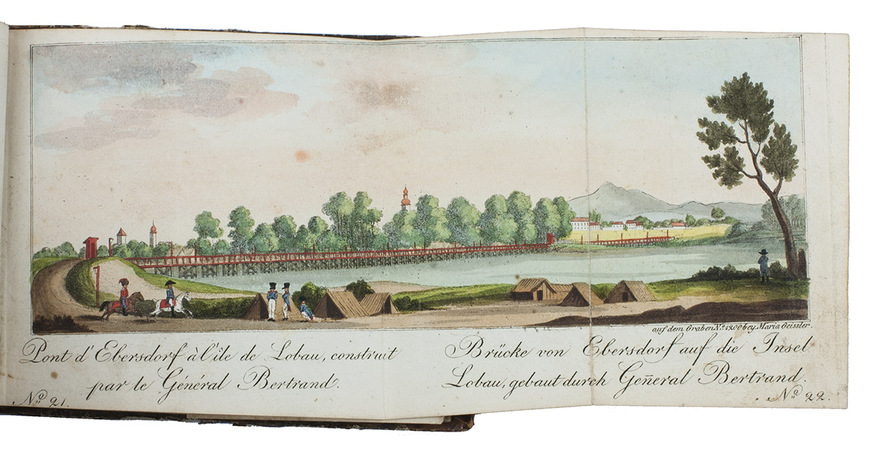 auf dem Graben No. 1200 bey Maria Geissler.
Pont d'Ebersdorf à l'ile de Lobau, construit
par le Général Bertrand.
No. 21.
Brücke von Ebersdorf auf die Insel
Lobau, gebaut durch Gen̄eral Bertrand.
No. 22.